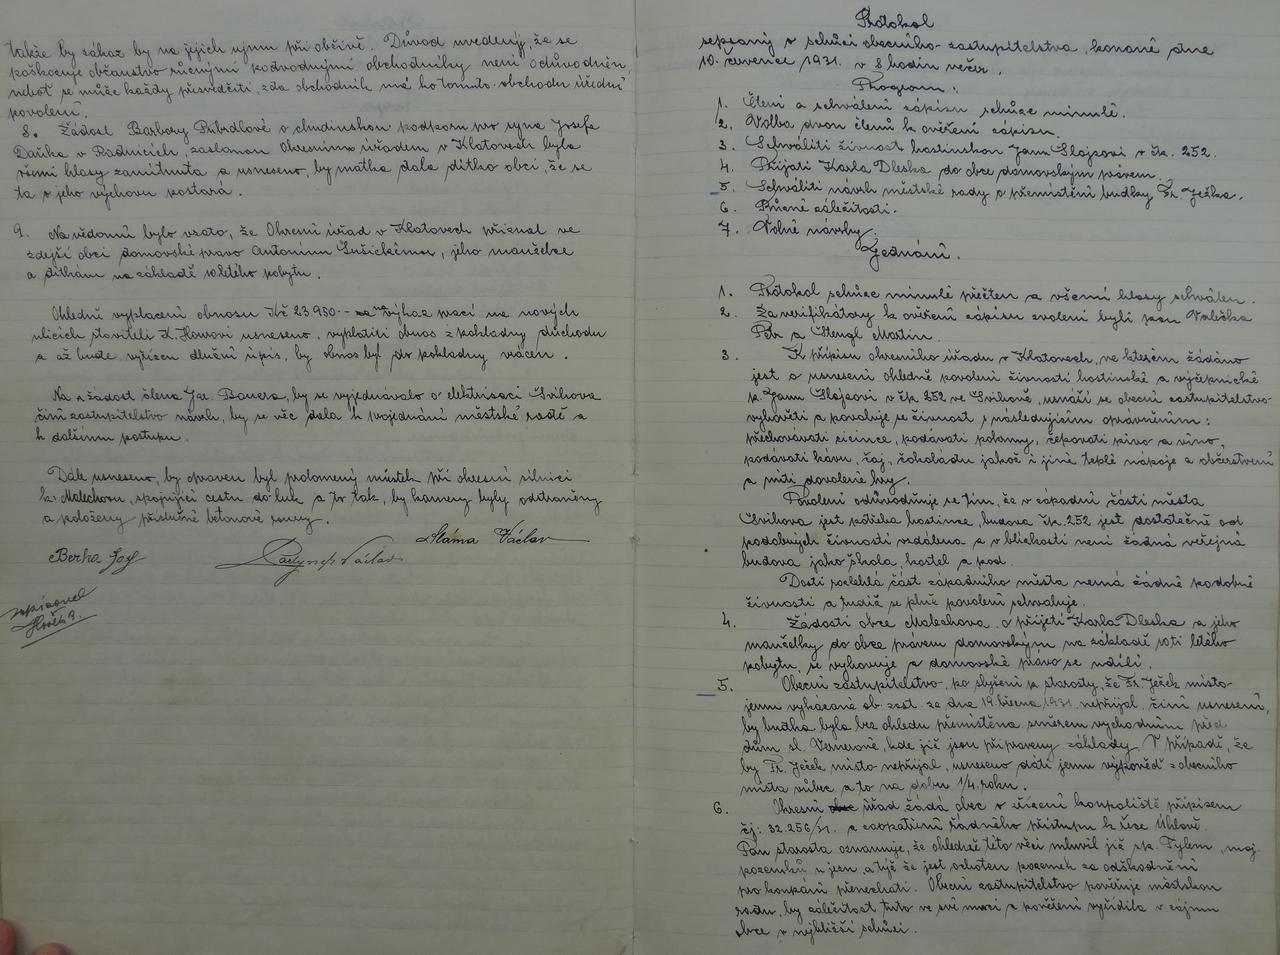 takže by zákaz by na jejich ujmu při obživě. Důvod uvedený, že se
poškozuje občanstvo různými podvodnými obchodníky není odůvodněn,
neboť se může každý přesvědčiti, zda obchodník má ko tomuto obchodu úřední
povolení.
8. Žádost Barbory Přibrdlové o chudinskou podporu pro syna Josefa
Daňka v Radnicích, zaslanou Okresním úřadem v Klatovech byla
všemi hlasy zamítnuta a usneseno, by matka dala dítko obci, že se
ta o jeho výchovu postará.
9. Na vědomí bylo vzato, že Okresní úřad v Klatovech přiznal ve
zdejší obci domovské právo Antonínu Sušickému, jeho manželce
a dítkám na základě 10letého pobytu.
Ohledně vyplacení obnosu Kč 23.950·- na výkaz prací na nových
ulicích staviteli K. Hourovi usneseno, vyplatiti obnos z pokladny důchodu
a až bude vyřízen dlužní úpis, by obnos byl do pokladny vrácen.
Na žádost člena Jar. Bauera, by se vyjednávalo o elektrisaci Švihova
činí zastupitelstvo návrh, by se věc dala k projednání městské radě a
k dalšímu postupu.
Dále usneseno, by opraven byl prolomený můstek při okresní silnici
k Malechovu, spojující cestu do luk a to tak, by kameny byly odstraněny
a položeny příslušné betonové roury.
Berka Josf Václav Sláma Václav
zapisovatel
Protokol
sepsaný v schůzi obecního zastupitelstva, konané dne
10. července 1931. v 8 hodin večer.
Program:
1. Čtení a schválení zápisu schůze minulé.
2. Volba dvou členů k ověření zápisu.
3. Schváliti živnost hostinskou Janu Slajsovi v čp. 252.
4. Přijati Karla Dleska do obce domovským právem.
5. Schváliti návrh městské rady o přemístění budky Fr. Ježka.
6. Různé záležitosti.
7. Volné návrhy.
Jednání.
1. Protokol schůze minulé přečten a všemi hlasy schválen.
2. Za verifikátory k ověření zápisu zvoleni byli pan Valička
Petr a Stengl Martin.
3. K přípisu okresního úřadu v Klatovech, ve kterém žádáno
jest o usnesení ohledně povolení živnosti hostinské a výčepnické
p. Janu Slajsovi v čp. 252 ve Švihově, usnáší se obecní zastupitelstvo
vyhověti a povoluje se živnost s následujícím oprávněním:
přechovávati cizince, podávati pokrmy, čepovati pivo a víno,
podávati kávu, čaj, čokoládu jakož i jiné teplé nápoje a občerstvení
a míti dovolené hry.
Povolení odůvodňuje se tím, že v západní části města
Švihova jest potřeba hostince, budova čp. 252 jest dostatečně od
podobných živností vzdálena a v blízkosti není žádná veřejná
budova jako škola, kostel a pod.
Dosti rozlehlá část západního města nemá žádné podobné
živnosti a tudíž se plně povolení schvaluje.
4. Žádosti obce Malechova o přijetí Karla Dleska a jeho
manželky do obce právem domovským na základě 10ti letého
pobytu, se vyhovuje a domovské právo se udílí.
5. Obecní zastupitelstvo, po slyšení p. starosty, že Fr. Ježek místo
jemu vykázané ob. zast. ze dne 19. března 1931. nepřijal, činí usnesení,
by budka byla bez ohledu přemístěna směrem východním před
dům sl. Vernerové, kde již jsou připraveny základy. V případě, že
by Fr. Ježek místo nepřijal, usneseno dáti jemu výpověď z obecního
místa vůbec a to na dobu 1/4 roku.
6. Okresní úřad žádá obec o zřízení koupaliště přípisem
čj: 32.256/31. a zaopatření řádného přístupu k řece Úhlavě.
Pan starosta oznamuje, že ohledně této věci mluvil již sp. Tylem, maj.
pozemků u jezu, a týž že jest ochoten pozemek za odškodnění
pro koupání přenechati. Obecní zastupitelstvo pověřuje městskou
radu, by záležitost tuto ve své moci a pověření vyřídila v zájmu
obce v nejbližší schůzi.